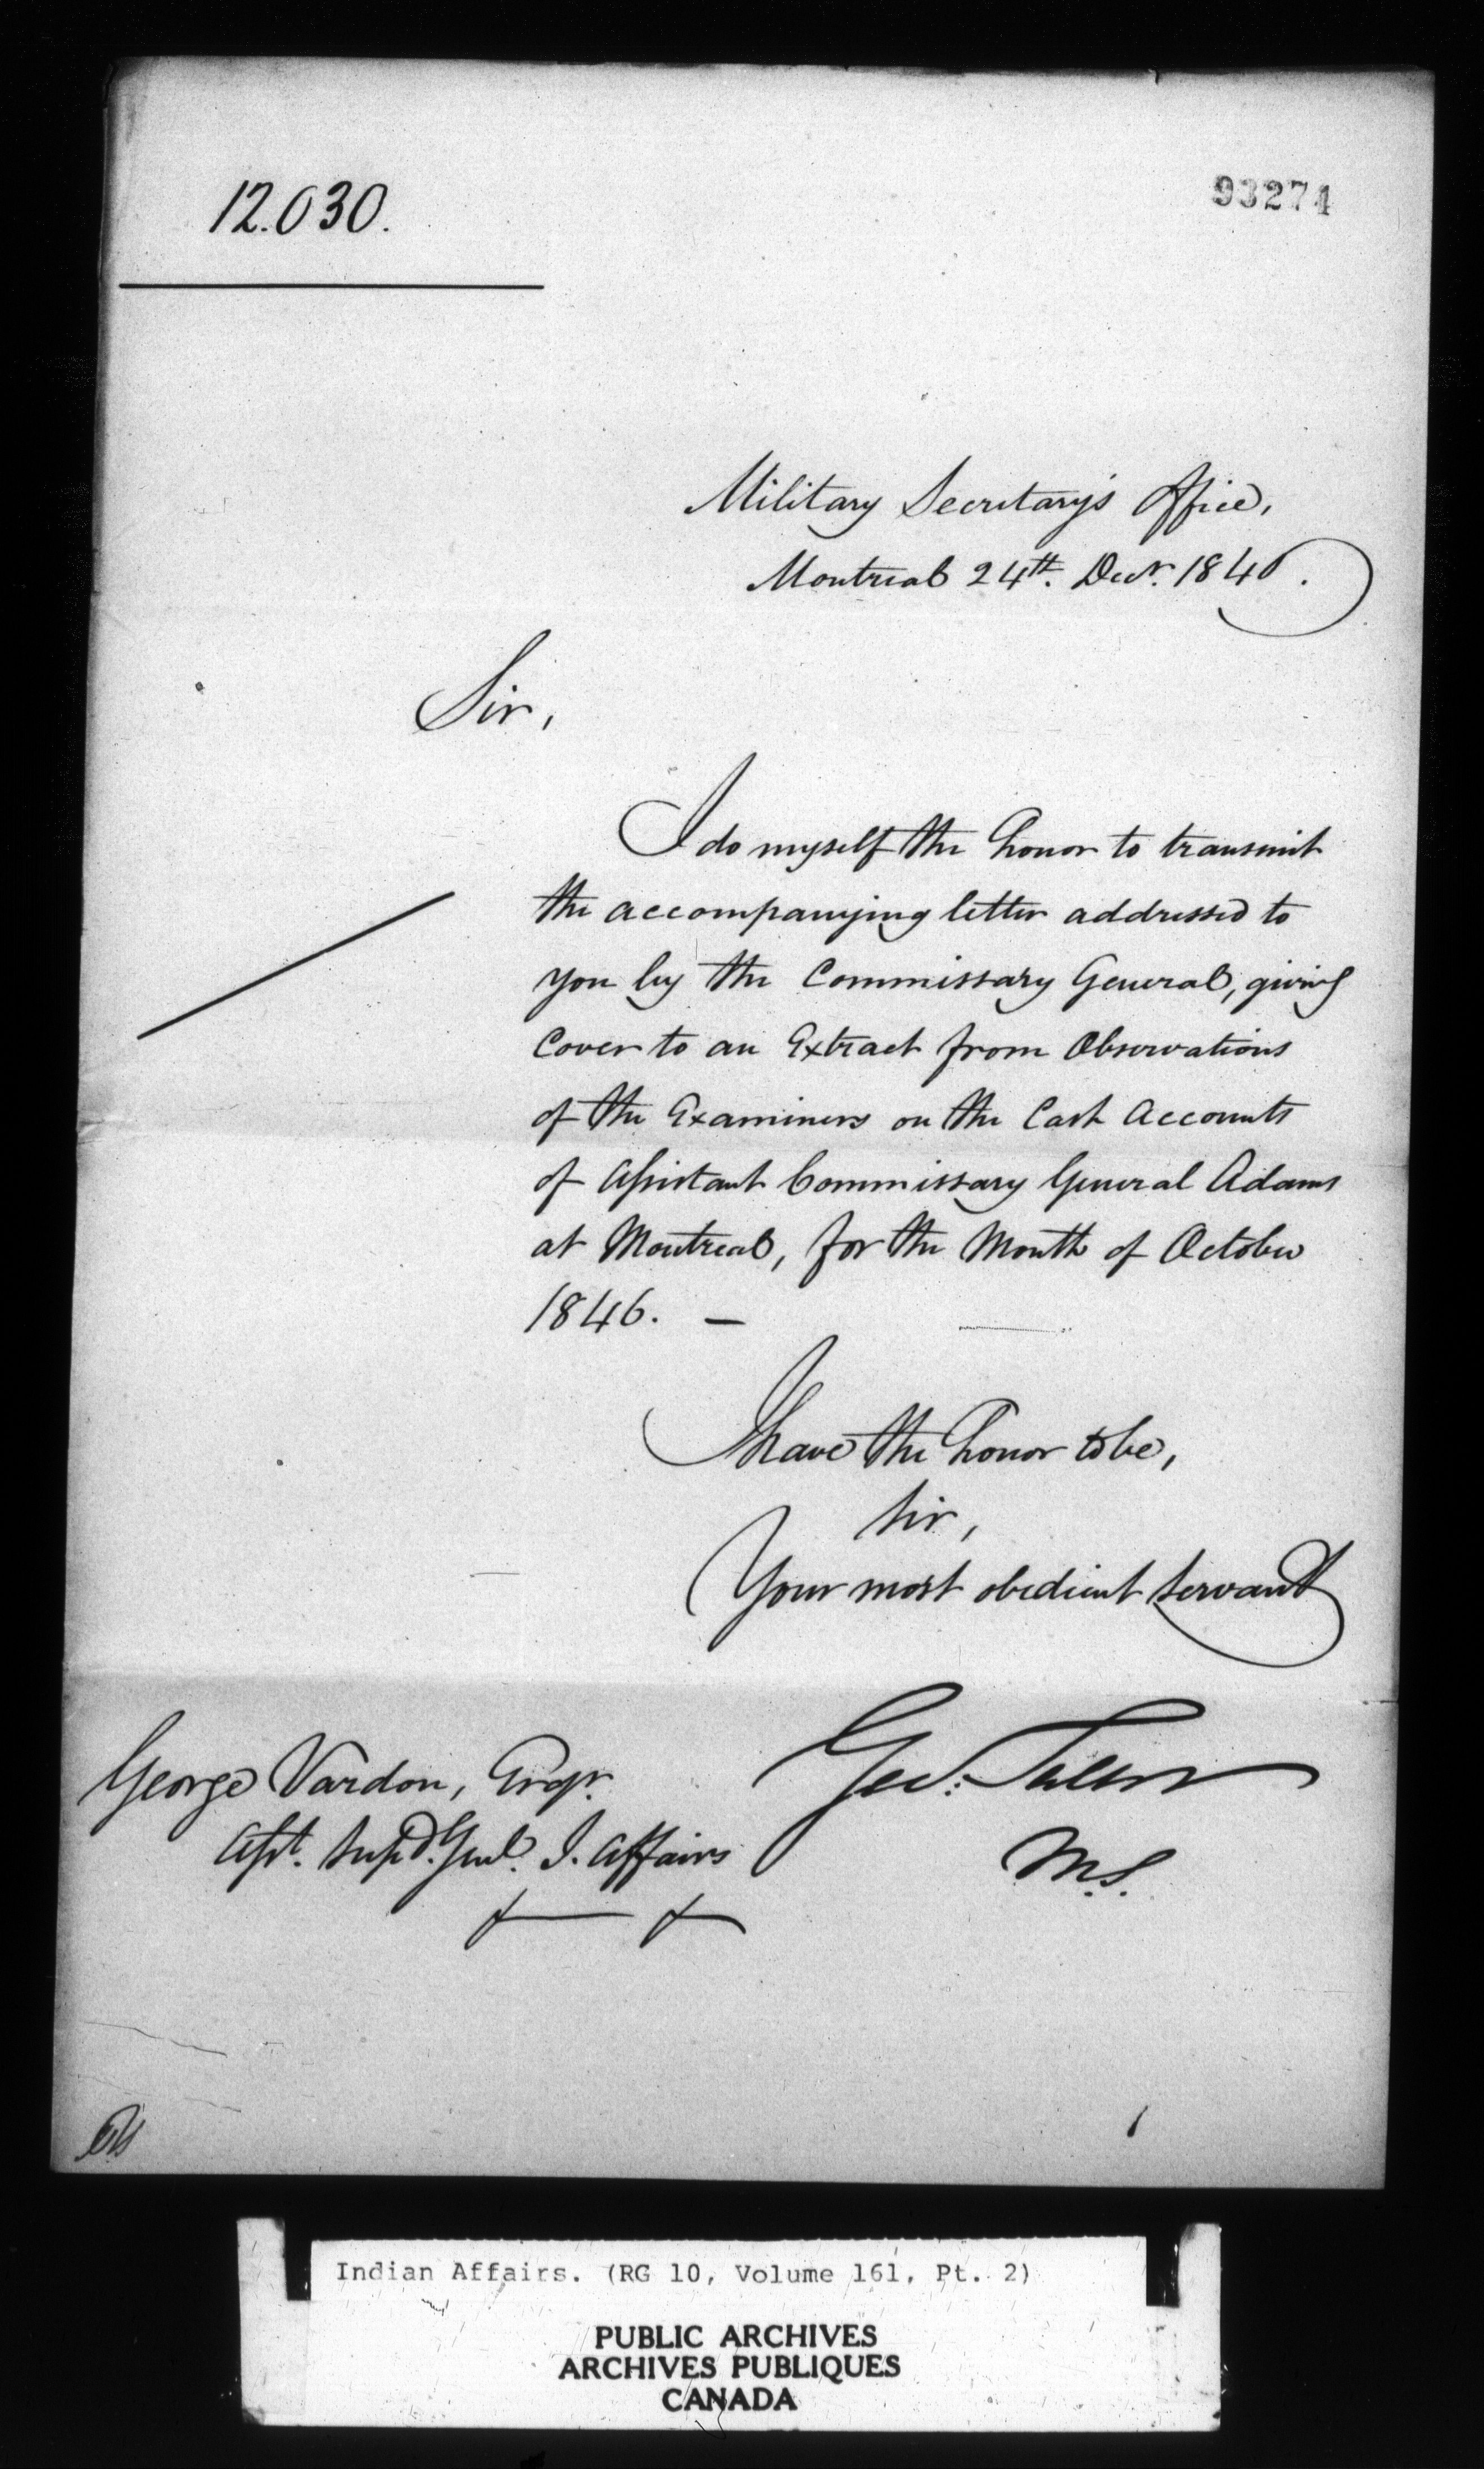 12.030.
93274
Military Secretary's Office,
Montreal 24th. Decr. 1846.
Sir,
I do myself the honor to transmit
the accompanying letter addressed to
you by the Commissary General, giving
Cover to an Extract from Observations
of the Examiners on the Cash Accounts
of Assistant Commissary General Adams
at Montreal, for the Month of October
1846. —
I have the honor to be,
Sir,
Your most obedient servant
Geo:
M.S.
George Vardon, Esqr.
Asst. Supd. Genl. I. Affairs
Indian Affairs. (RG 10, Volume 161, Pt. 2)
PUBLIC ARCHIVES
ARCHIVES PUBLIQUES
CANADA